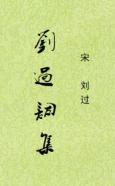 劉過詞集
宋 刘过